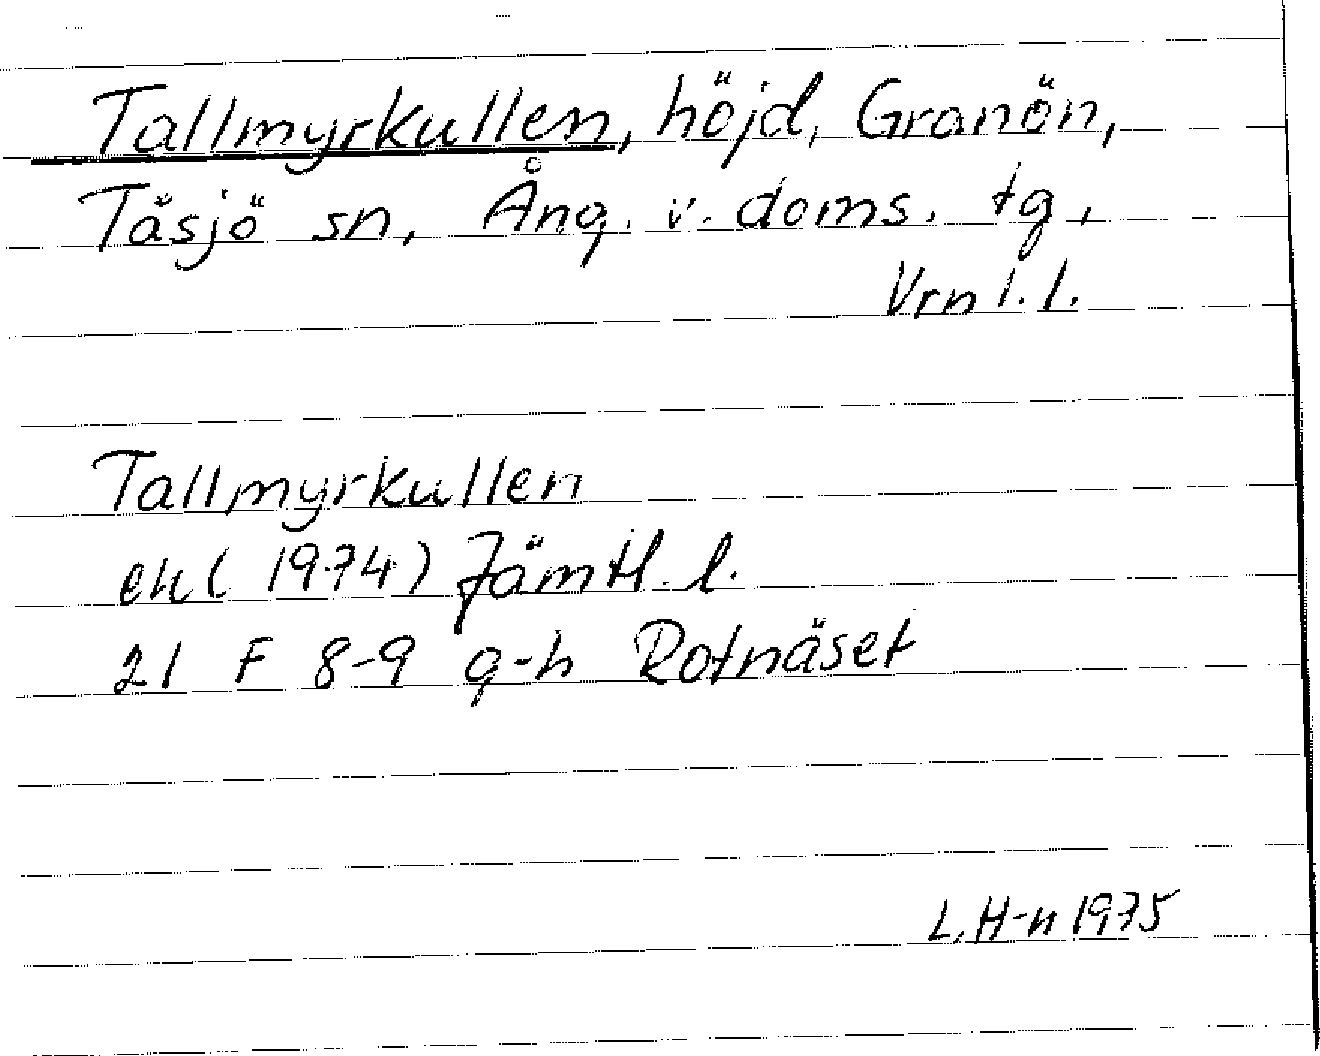 Tallmyrkullen, höjd, Granön,
Tåsjö sn, Ång. v. doms. tg,
Vrn l. l.
Tallmyrkullen
ek (1974) Jämtl. l.
21 F 8-9 g-h Rotnäset
L. H-n 1975